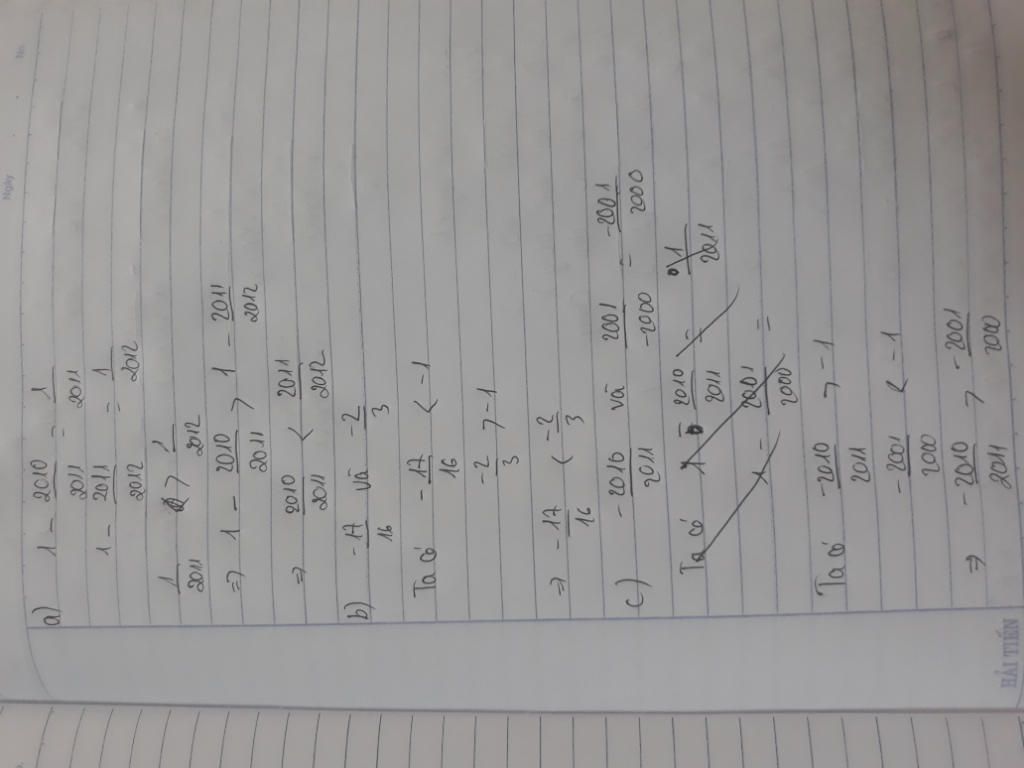 Ngày
a) 1 - 2010/2011 = 1/2011
1 - 2011/2012 = 1/2012
1/2011 > 1/2012
=> 1 - 2010/2011 > 1 - 2011/2012
=> 2010/2011 < 2011/2012
b) -17/16 và -2/3
Ta có -17/16 < -1
-2/3 > -1
=> -17/16 < -2/3
c) -2010/2011 và 2001/-2000 = -2001/2000
Ta có 1 - 2010/2011 = 1/2011
1 - 2001/2000 =
Ta có -2010/2011 > -1
-2001/2000 < -1
=> -2010/2011 > -2001/2000
HẢI TIẾN